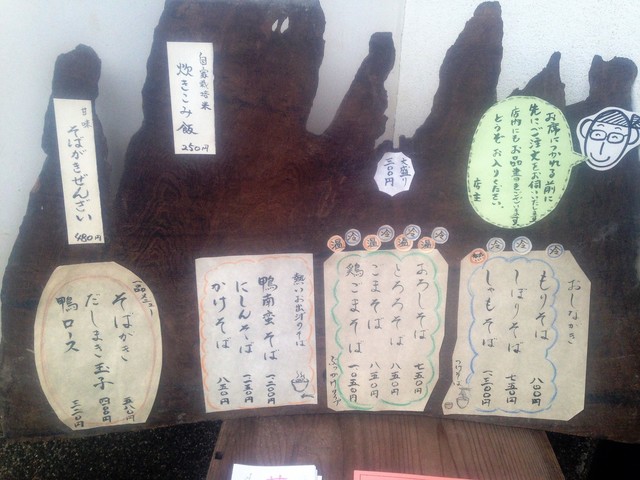 お席につかれる前に
先にご注文をお伺いします
店内にもお品書きございます
どうぞお入りください。
店主
大盛り
三〇〇円
自家栽培米
炊きこみ飯
250円
甘味
そばがきぜんざい
480円
おしながき
冷
冷
もりそば 八〇〇円
しぼりそば 七五〇円
しゃもそば 一三〇〇円
温
冷
温
冷
温
冷
温
冷
おろしそば 七五〇円
とろろそば 八五〇円
ごまそば 八五〇円
鶏ごまそば 一〇五〇円
ぶっかけタイプ
熱いお出汁のそば
鴨南蛮そば 一二〇〇円
にしんそば 一一五〇円
かけそば 八五〇円
一品メニュー
そばがき
だしまき玉子 四五〇円
鴨ロース